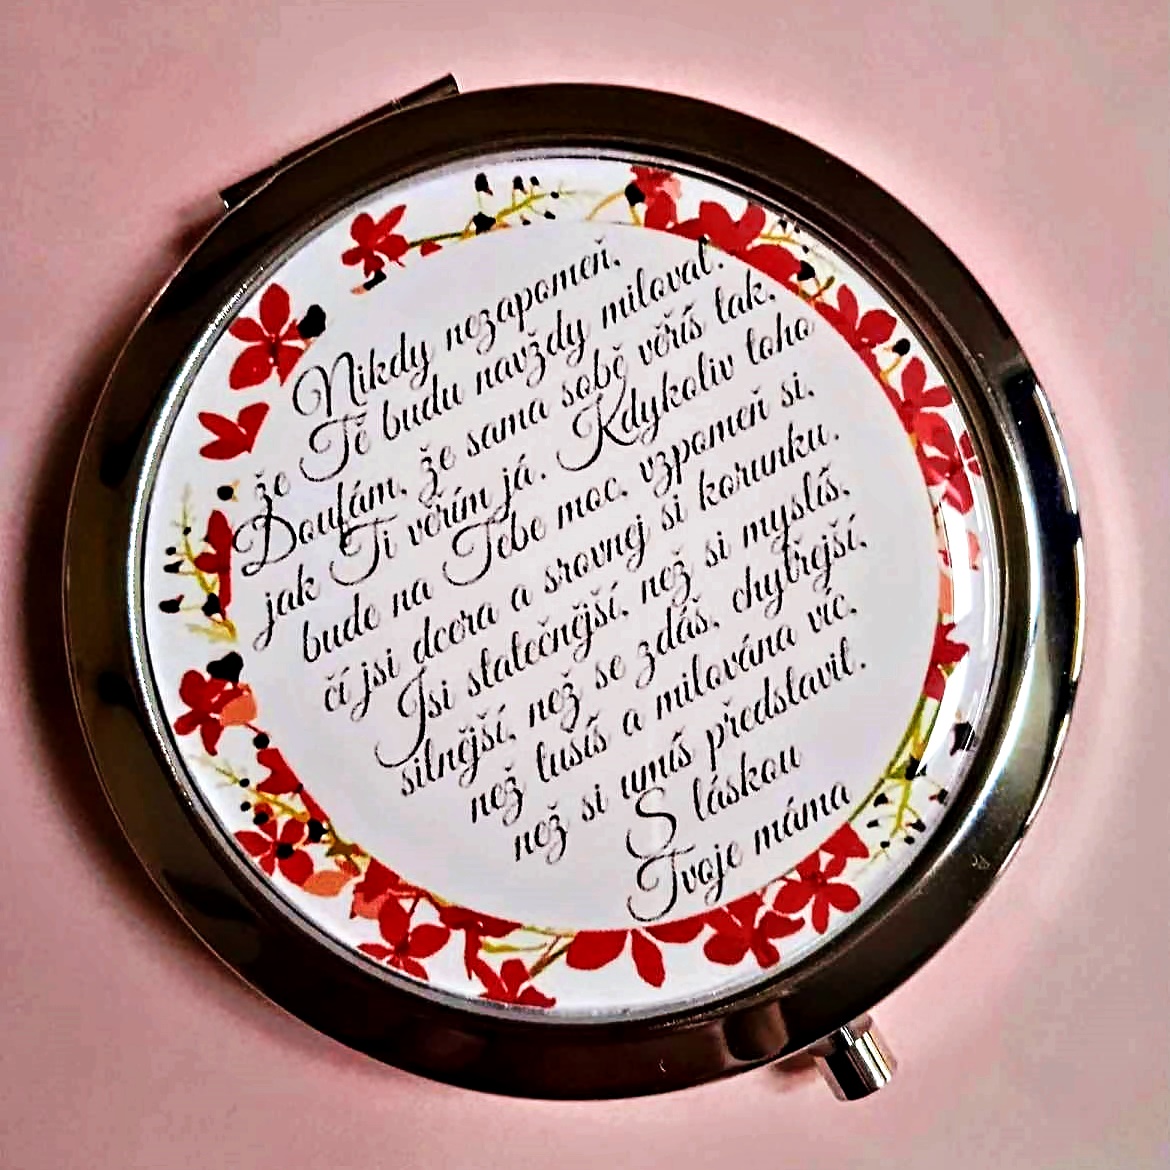 Nikdy nezapomeň,
že Tě budu navždy milovat.
Doufám, že sama sobě věříš tak,
jak Ti věřím já. Kdykoliv toho
bude na Tebe moc, vzpomeň si,
čí jsi dcera a srovnej si korunku.
Jsi statečnější, než si myslíš,
silnější, než se zdáš, chytřejší,
než tušíš a milována víc,
než si umíš představit.
S láskou
Tvoje máma